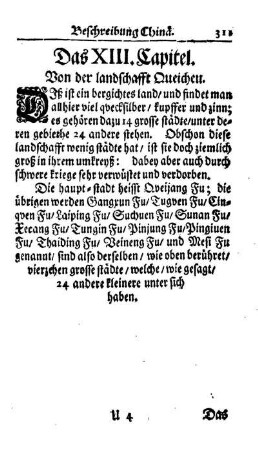 Beschreibung Chinä. 311
Das XIII. Capitel.
Von der landschafft Queicheu.
DIß ist ein bergichtes land/ und findet man
allhier viel qvecksilber/ kupffer und zinn;
es gehören dazu 14 grosse städte/ unter de-
ren gebiethe 24 andere stehen. Obschon diese
landschafft wenig städte hat/ ist sie doch ziemlich
groß in ihrem umkreyß: dabey aber auch durch
schwere kriege sehr verwüstet und verdorben.
Die haupt-stadt heisst Qveijang Fu; die
übrigen werden Gangxun Fu/ Tugven Fu/ Cin-
qven Fu/ Laiping Fu/ Suchuen Fu/ Sunan Fu/
Xecang Fu/ Tungin Fu/ Pinjung Fu/ Pingiuen
Fu/ Thaiding Fu/ Veineng Fu/ und Mesi Fu
genannt/ sind also derselben/ wie oben berühret/
vierzehen grosse städte/ welche/ wie gesagt/
24 andere kleinere unter sich
haben.
U 4 Das